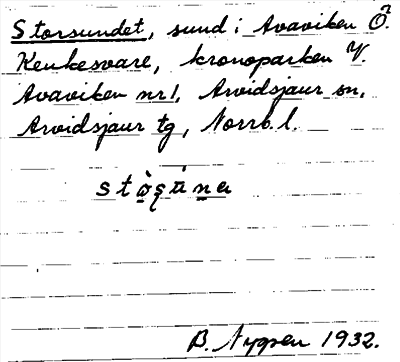 Storsundet, sund i Avaviken Ö.
Keukesvare, kronoparken V.
Avaviken nr 1, Arvidsjaur sn,
Arvidsjaur tg, Norrb. l.
B. Nygren 1932.